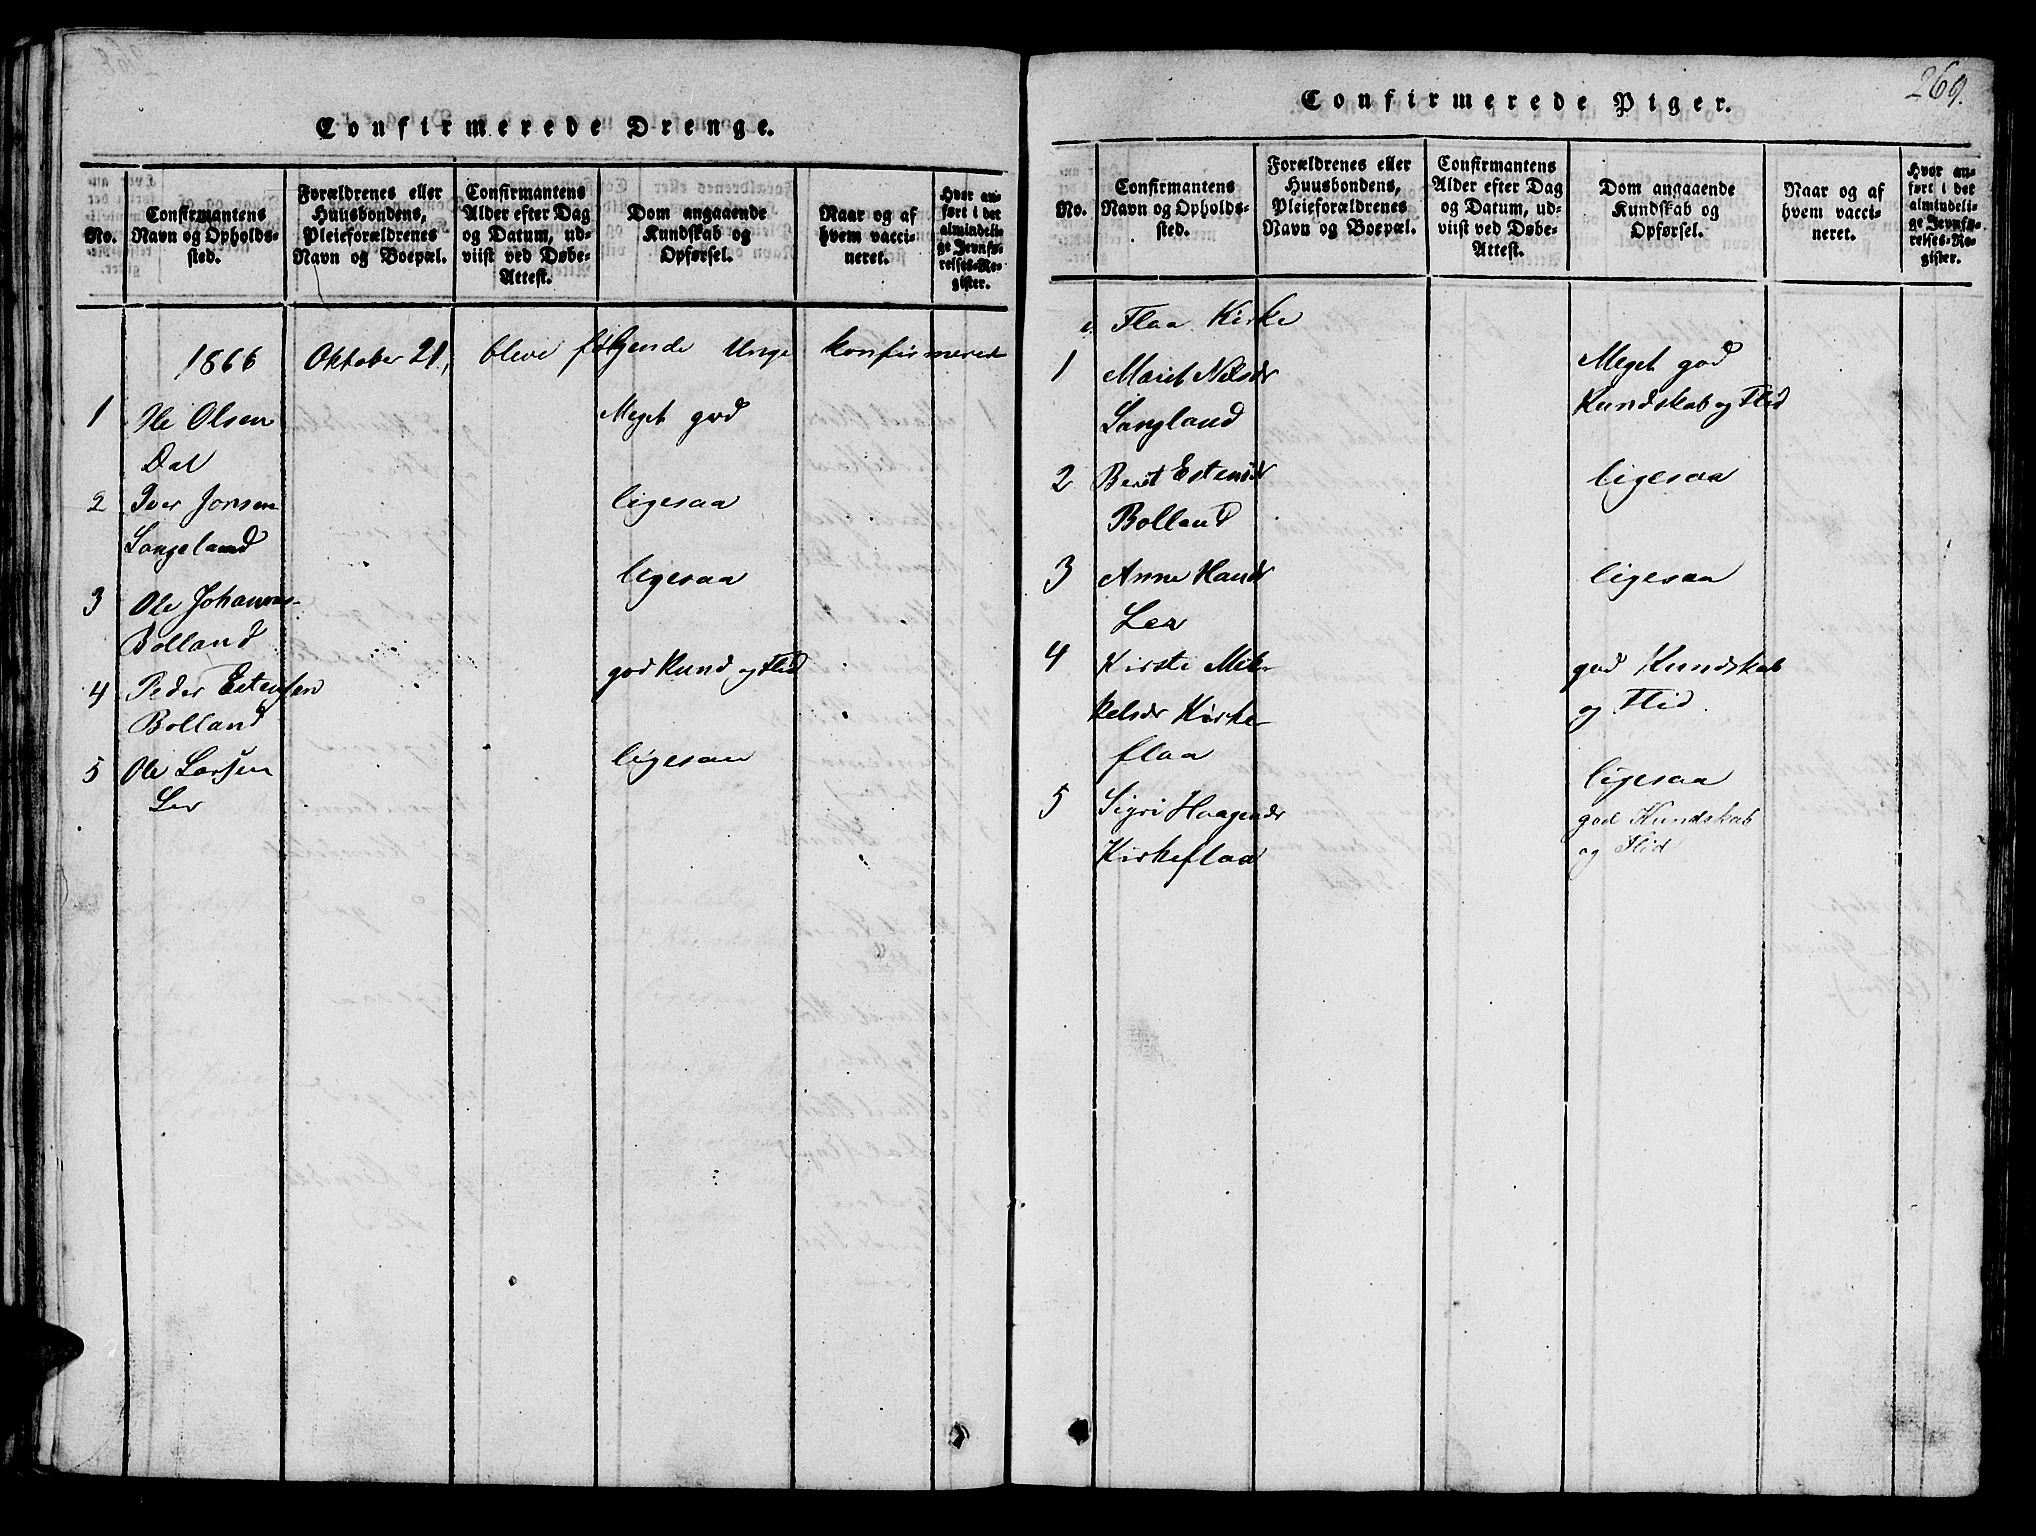 Confirmerede Drenge.
No.
Confirmantens
Navn og Opholds-
sted.
Forældrenes eller
Huusbondens,
Pleieforældrenes
Navn og Boepæl.
Confirmantens
Alder efter Dag
og Datum, ud-
viist ved Døbe-
Attest.
Dom angaaende
Kundskab og
Opførsel.
Naar og af
hvem vacci-
neret.
Hvor an-
ført i det
almindeli-
ge Jevnfø-
relses-Re-
gister.
1866 Oktober 21, bleve følgende Unge konfirmered
1 Ole Olsen Meget god
Dal
2 Iver Jonsen ligesaa
Langeland
3 Ole Johannes- ligesaa
Bolland
4 Peder Estensen god Kund og Flid
Bolland
5 Ole Larsen ligesaa
Ler
Confirmerede Piger.
269.
No.
Confirmantens
Navn og Opholds-
sted.
Forældrenes eller
Huusbondens,
Pleieforældrenes
Navn og Boepæl.
Confirmantens
Alder efter Dag
og Datum, ud-
viist ved Døbe-
Attest.
Dom angaaende
Kundskab og
Opførsel.
Naar og af
hvem vacci-
neret.
Hvor an-
ført i det
almindeli-
ge Jevnfø-
relses-Re-
gister.
i Flaa Kirke
1 Marit Nilsdr Meget god
Langland Kundskab og Flid
2 Berit Estensdr ligesaa
Bolland
3 Anne Hansdr ligesaa
Ler
4 Kirsti Mik- god Kundskab
kelsdr Kirke- og Flid
flaa
ligesaa
5 Sigri Haagensdr god Kundskab
Kirkeflaa og Flid